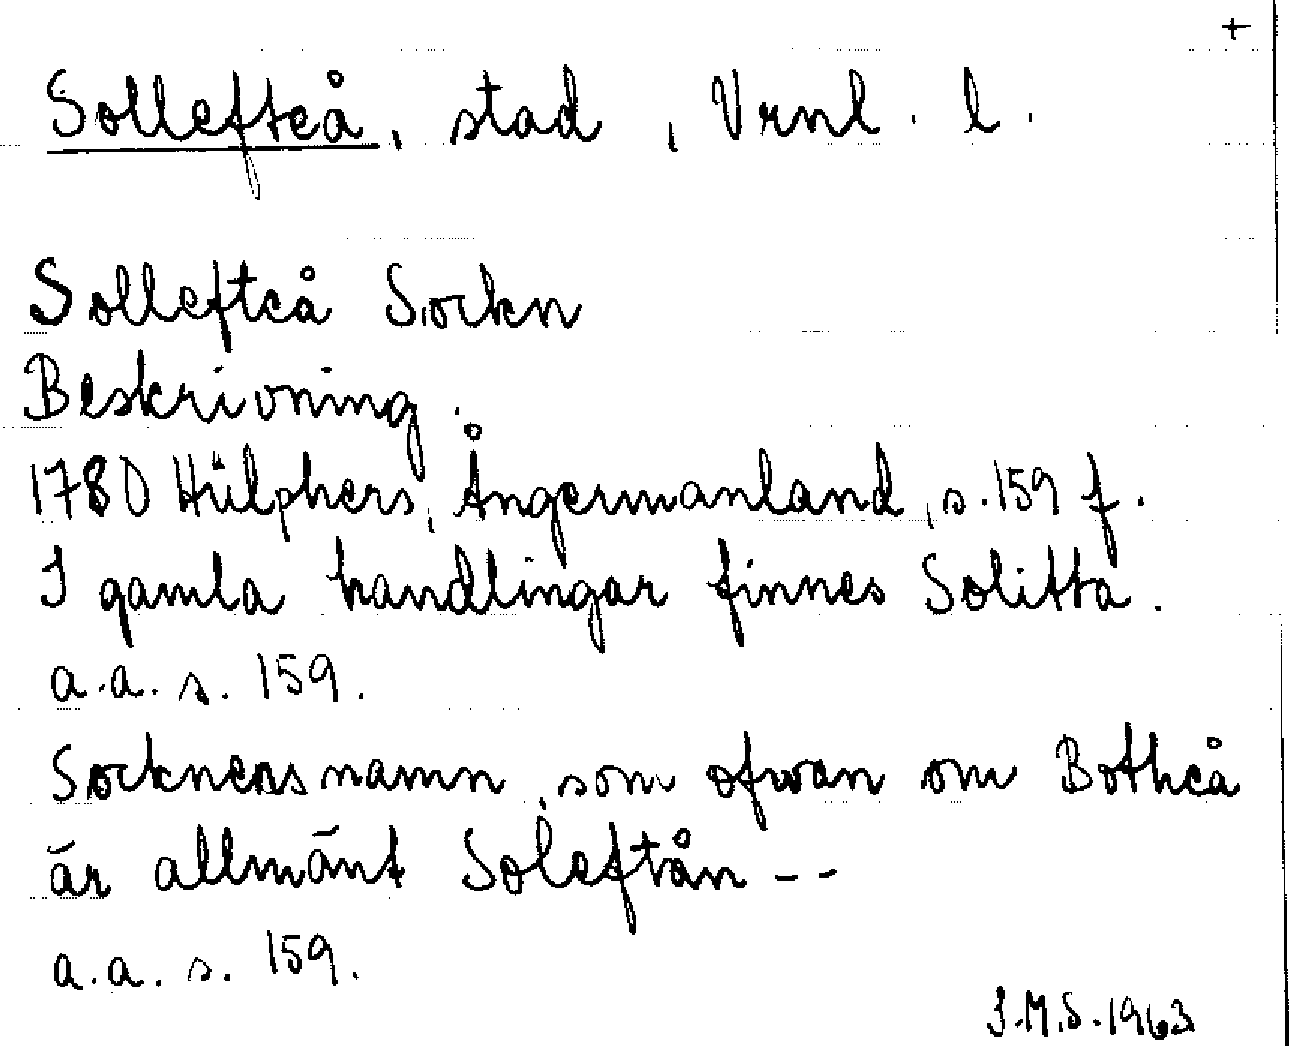 +
Sollefteå, stad, Vrnl. l.
Sollefteå Sockn
Beskrivning.
1780 Hülphers, Ångermanland, s. 159 f.
I gamla handlingar finnes Solitta.
a.a. s. 159.
Socknens namn, som ofwan om Botheå
är allmänt Soleftån --
a.a. s. 159.
I.M.S. 1963